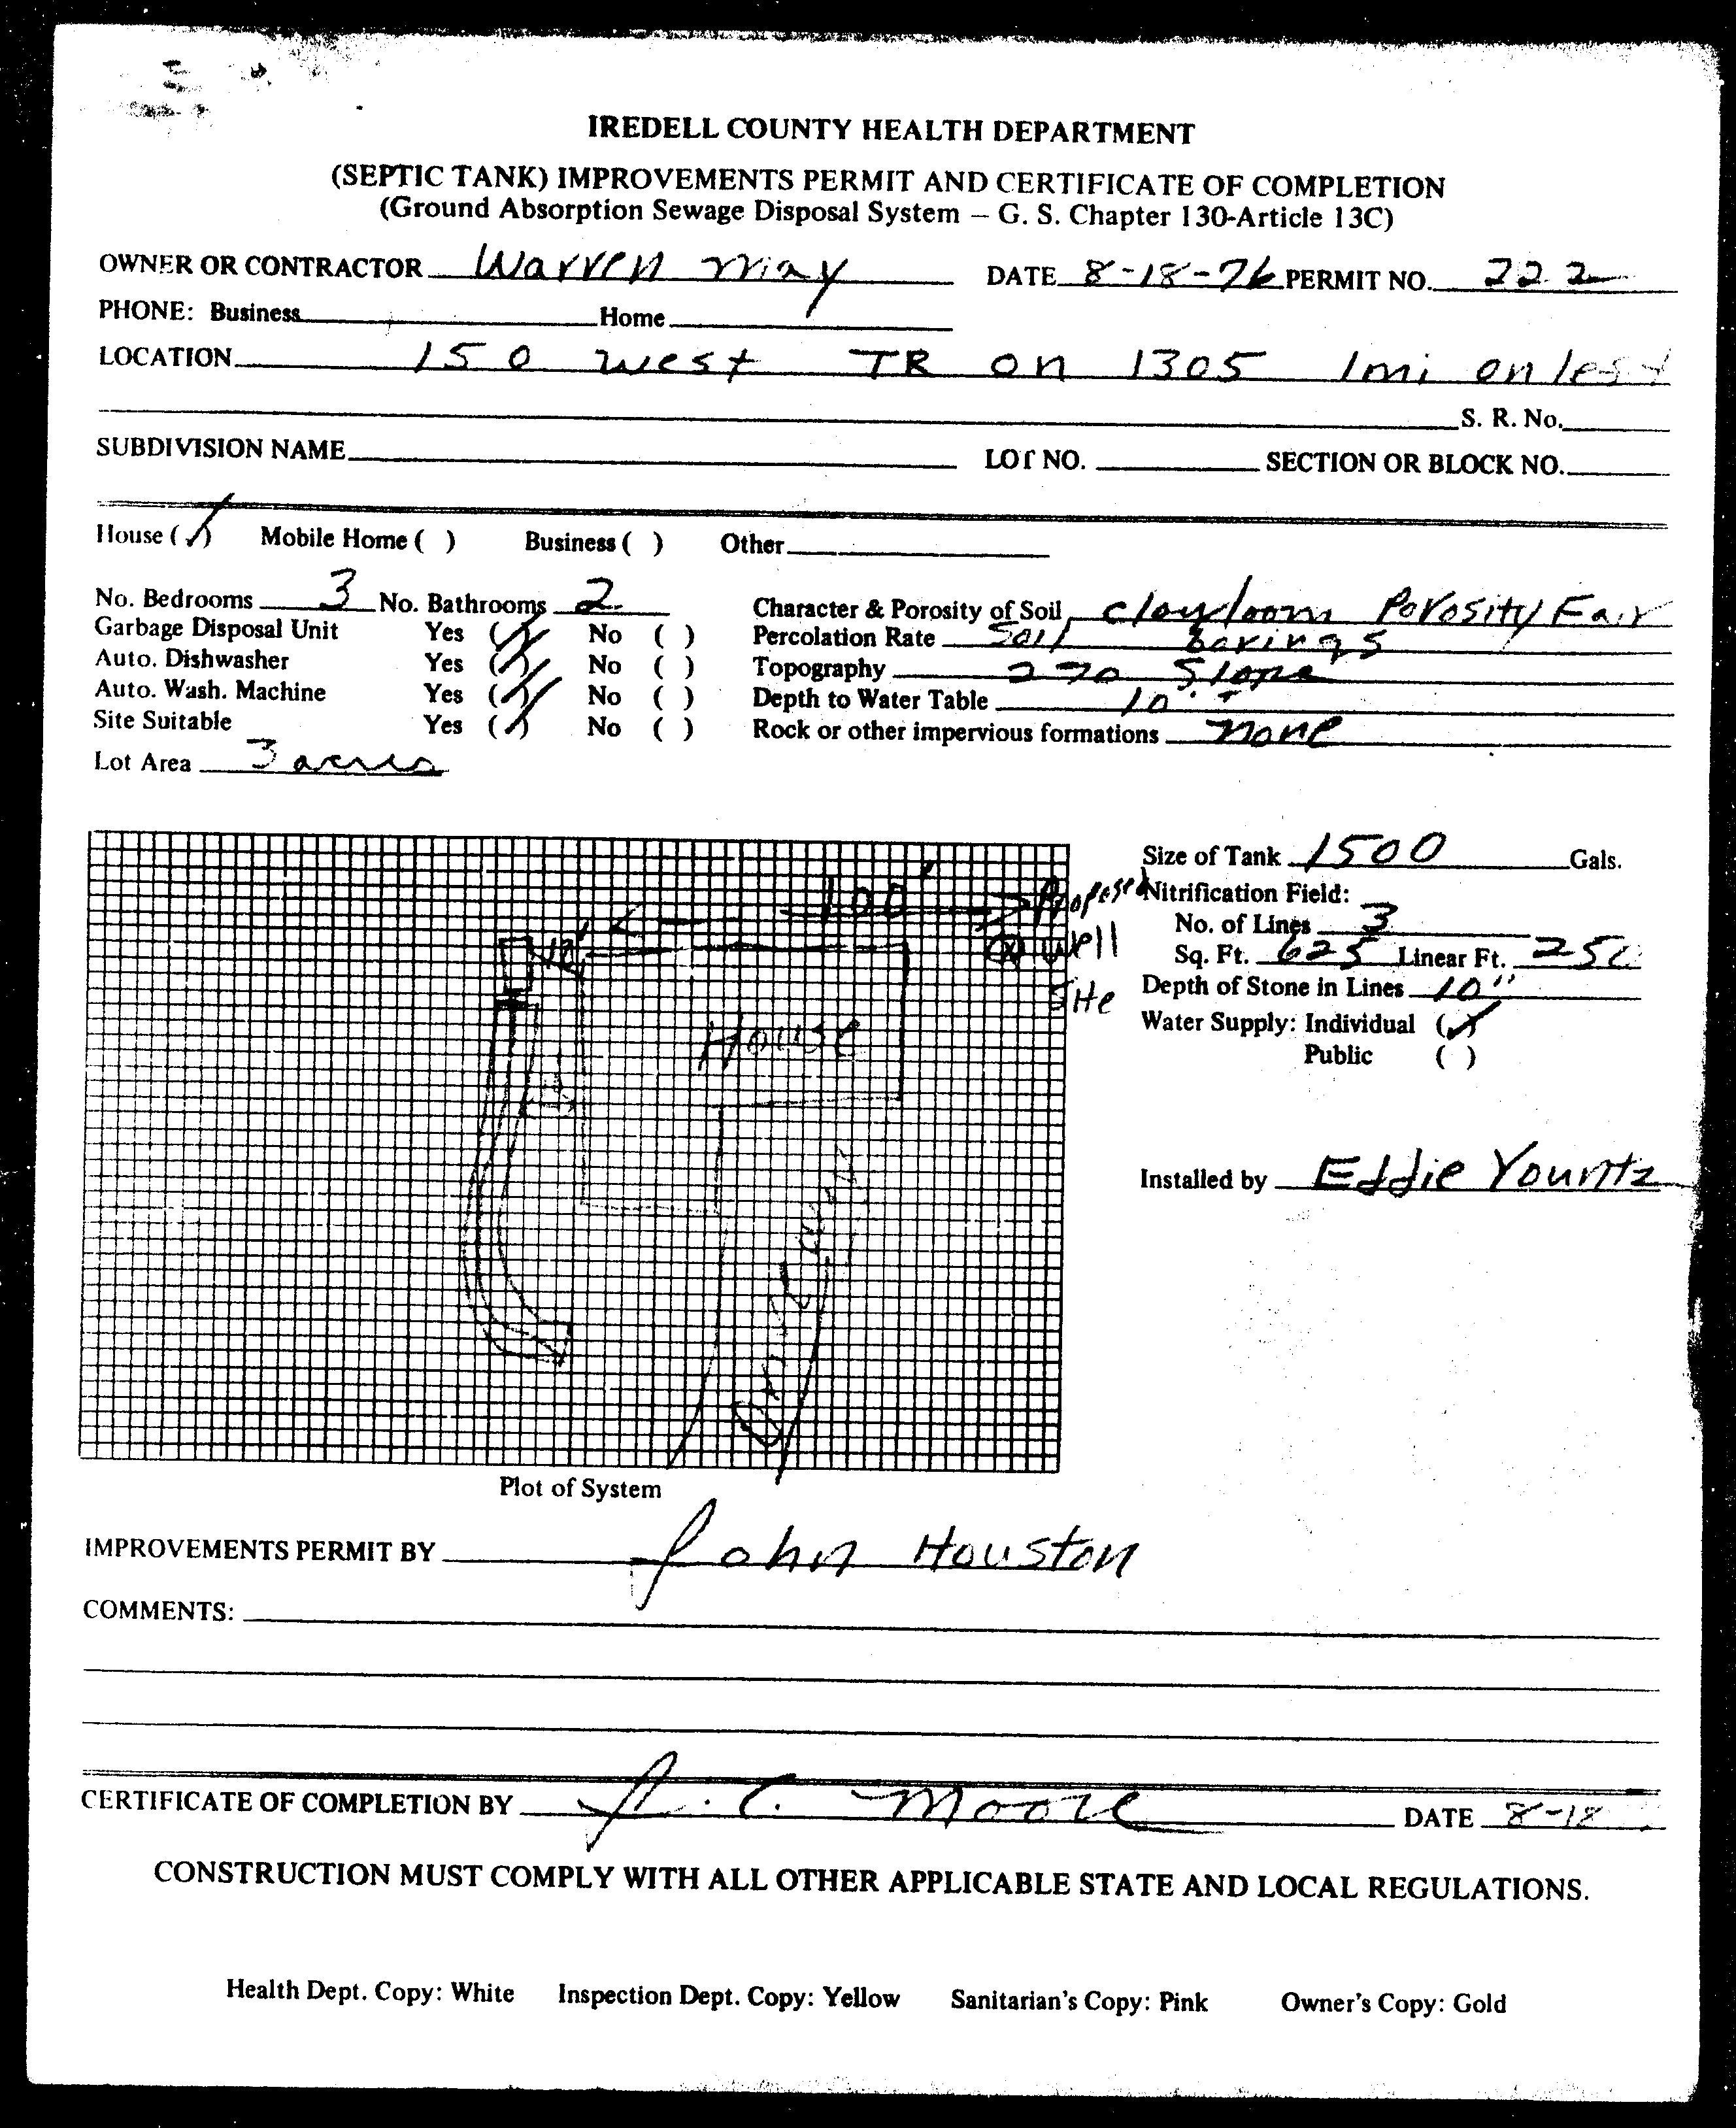 IREDELL COUNTY HEALTH DEPARTMENT
(SEPTIC TANK) IMPROVEMENTS PERMIT AND CERTIFICATE OF COMPLETION
(Ground Absorption Sewage Disposal System – G. S. Chapter 130-Article 13C)
OWNER OR CONTRACTOR Warren May DATE 8-18-76 PERMIT NO. 222
PHONE: Business Home
LOCATION 150 West TR on 1305 1mi on left
S. R. No.
SUBDIVISION NAME LOT NO. SECTION OR BLOCK NO.
House (✓) Mobile Home ( ) Business ( ) Other
No. Bedrooms 3 No. Bathrooms 2 Character & Porosity of Soil clay loom Porosity Fair
Garbage Disposal Unit Yes (✓) No ( ) Percolation Rate Soil Borings
Auto. Dishwasher Yes (✓) No ( ) Topography Slope
Auto. Wash. Machine Yes (✓) No ( ) Depth to Water Table 10'
Site Suitable Yes (✓) No ( ) Rock or other impervious formations none
Lot Area 3 acres
Size of Tank 1500 Gals.
100' Proposed Nitrification Field:
No. of Lines 3
Well Sq. Ft. 625 Linear Ft. 250
Site Depth of Stone in Lines 10"
House Water Supply: Individual (✓)
Public ( )
Installed by Eddie Yountz
Plot of System
IMPROVEMENTS PERMIT BY John Houston
COMMENTS:
CERTIFICATE OF COMPLETION BY J. C. Moore DATE 8-18
CONSTRUCTION MUST COMPLY WITH ALL OTHER APPLICABLE STATE AND LOCAL REGULATIONS.
Health Dept. Copy: White Inspection Dept. Copy: Yellow Sanitarian's Copy: Pink Owner's Copy: Gold